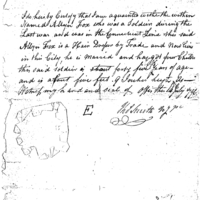 I do hereby Certify that I am aquainted with the within
Named Allyn Fox who was a Soldier during the
Last war and was in the Connecticut Line this said
Allyn Fox is a Hair Dresser by Trade and Now lives
in this City he is married and has got four Children
this said Soldier is about forty five years of age
and is about five feet 9 Inches high
Witness my hand and seal of office this July
E